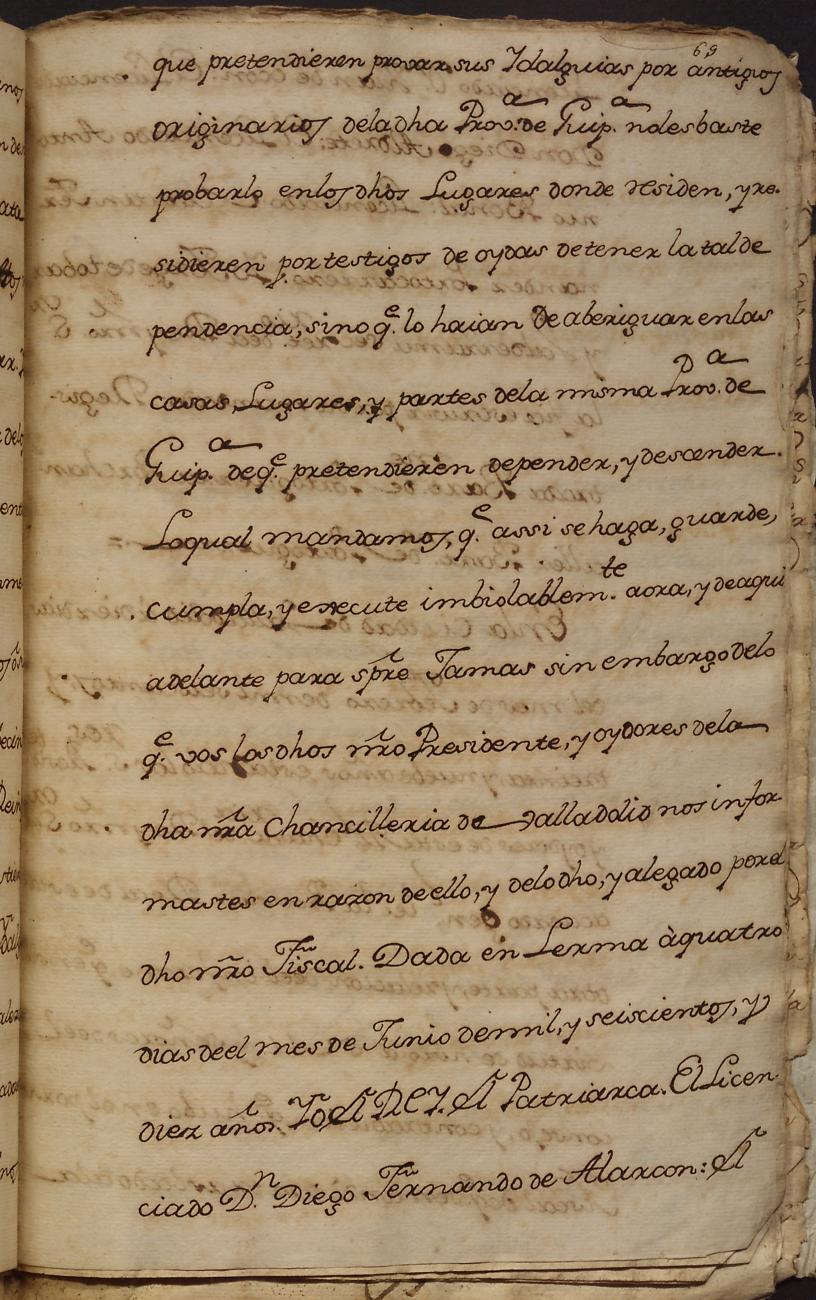 69
que pretendieren provar sus Idalguias por antigos
originarios dela dha Prov.a de Guip.a no les baste
probarlo en los dhos Lugares donde residen, y re-
sidieren por testigos de oydas de tener la tal de
pendencia, sino q.e lo haian de aberiguar en las
casas, Lugares, y partes dela misma Prov.a de
Guip.a de q.e pretendieren depender, y descender.
Lo qual mandamos, q.e assi se haga, guarde,
cumpla, y execute imbiolablem.te aora, y de aqui
adelante para spre Jamas sin embargo delo
q.e vos los dhos nro Presidente, y oydores dela
dha nra Chancilleria de Valladolid nos infor-
mastes en razon de ello, y delo dho, y alegado por el
dho nro Fiscal. Dada en Lerma à quatro
dias de el mes de Junio de mil, y seiscientos, y
diez años. Yo El REY. El Patriarca. El Licen-
ciado D.n Diego Fernando de Alarcon: El